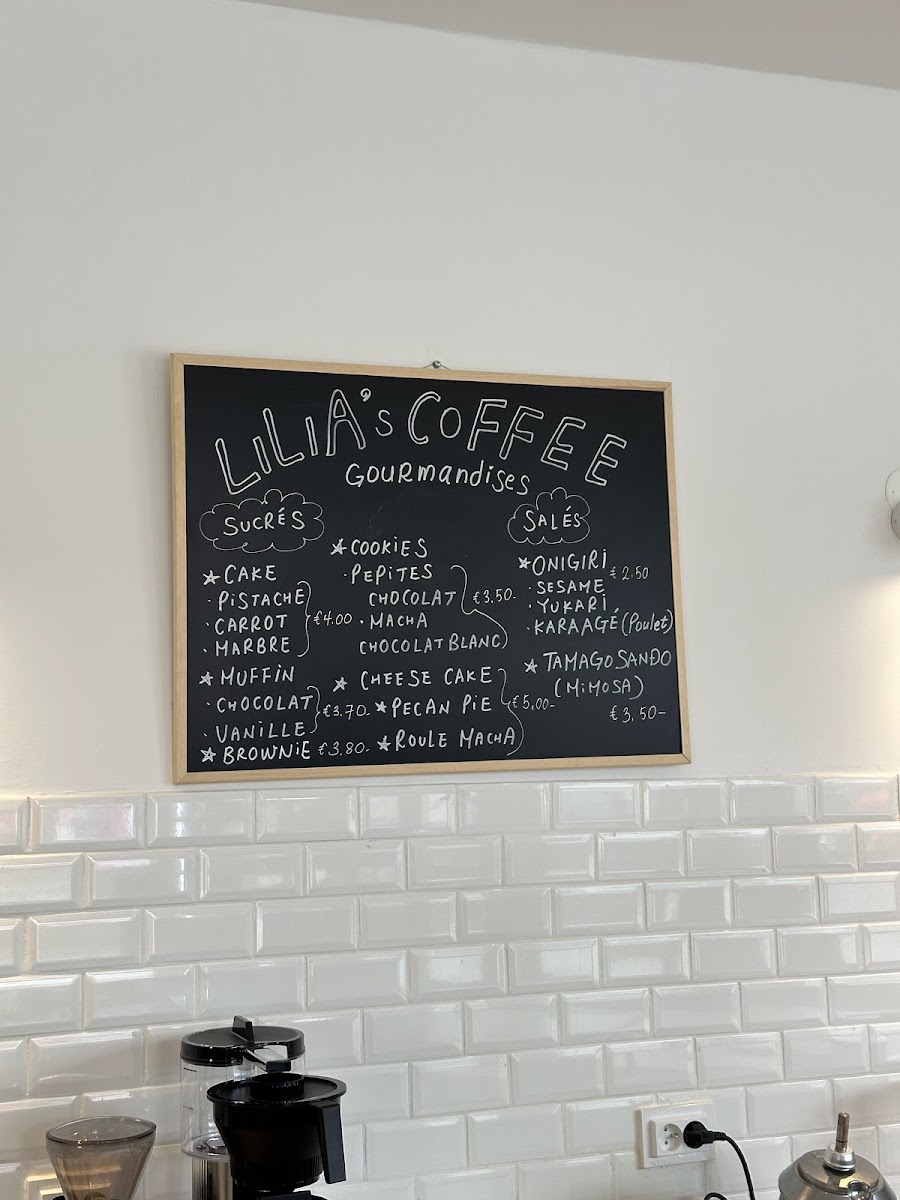 LiLiA's COFFEE
Gourmandises
SUCRÉS
☆ CAKE
· PISTACHE
· CARROT €4.00
· MARBRE
☆ MUFFIN
· CHOCOLAT
€3.70-
· VANILLE
☆ BROWNIE €3.80-
☆ COOKIES
· PEPITES
CHOCOLAT €3.50-
· MACHA
CHOCOLAT BLANC
☆ CHEESE CAKE
☆ PECAN PIE €5,00-
☆ ROULE MACHA
SALÉS
☆ ONIGIRI € 2.50
· SESAME
· YUKARI
· KARAAGÉ (Poulet)
☆ TAMAGO SANDO
(MiMOSA)
€ 3,50-